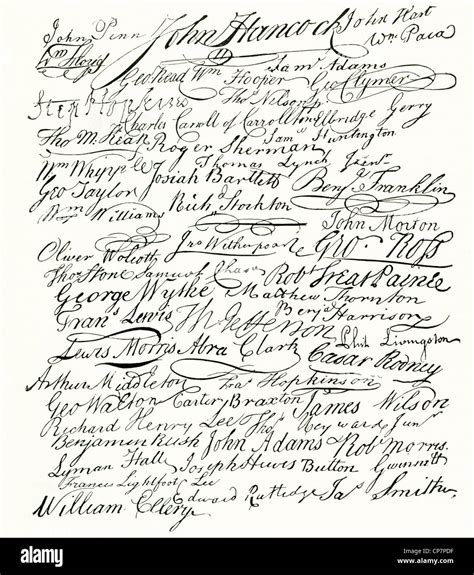 John Penn John Hancock John Hart
Wm Floyd Wm Paca
Geo Read Wm Hooper Saml Adams Geo Clymer
Step Hopkins Thos Nelson jr
Charles Carroll of Carrollton Elbridge Gerry
Tho M. Kean Roger Sherman Saml Huntington
Wm Whipple Thomas Lynch Junr
Geo Taylor Josiah Bartlett Benj Franklin
Wm Williams Rich Stockton
John Morton
Oliver Wolcott Jno Witherspoon Geo. Ross
Thos Stone Samuel Chase Robt Treat Paine
George Wythe Matthew Thornton
Frans Lewis Th Jefferson Benj Harrison
Lewis Morris Abra Clark Phil Livingston
Cæsar Rodney
Arthur Middleton Fras Hopkinson
Geo Walton Carter Braxton James Wilson
Richard Henry Lee Thos Heyward Junr
Benjamin Rush John Adams Robt Morris
Lyman Hall Joseph Hewes Button Gwinnett
Francis Lightfoot Lee
William Ellery Edward Rutledge Jas Smith
alamy
Image ID: CP7PDF
www.alamy.com